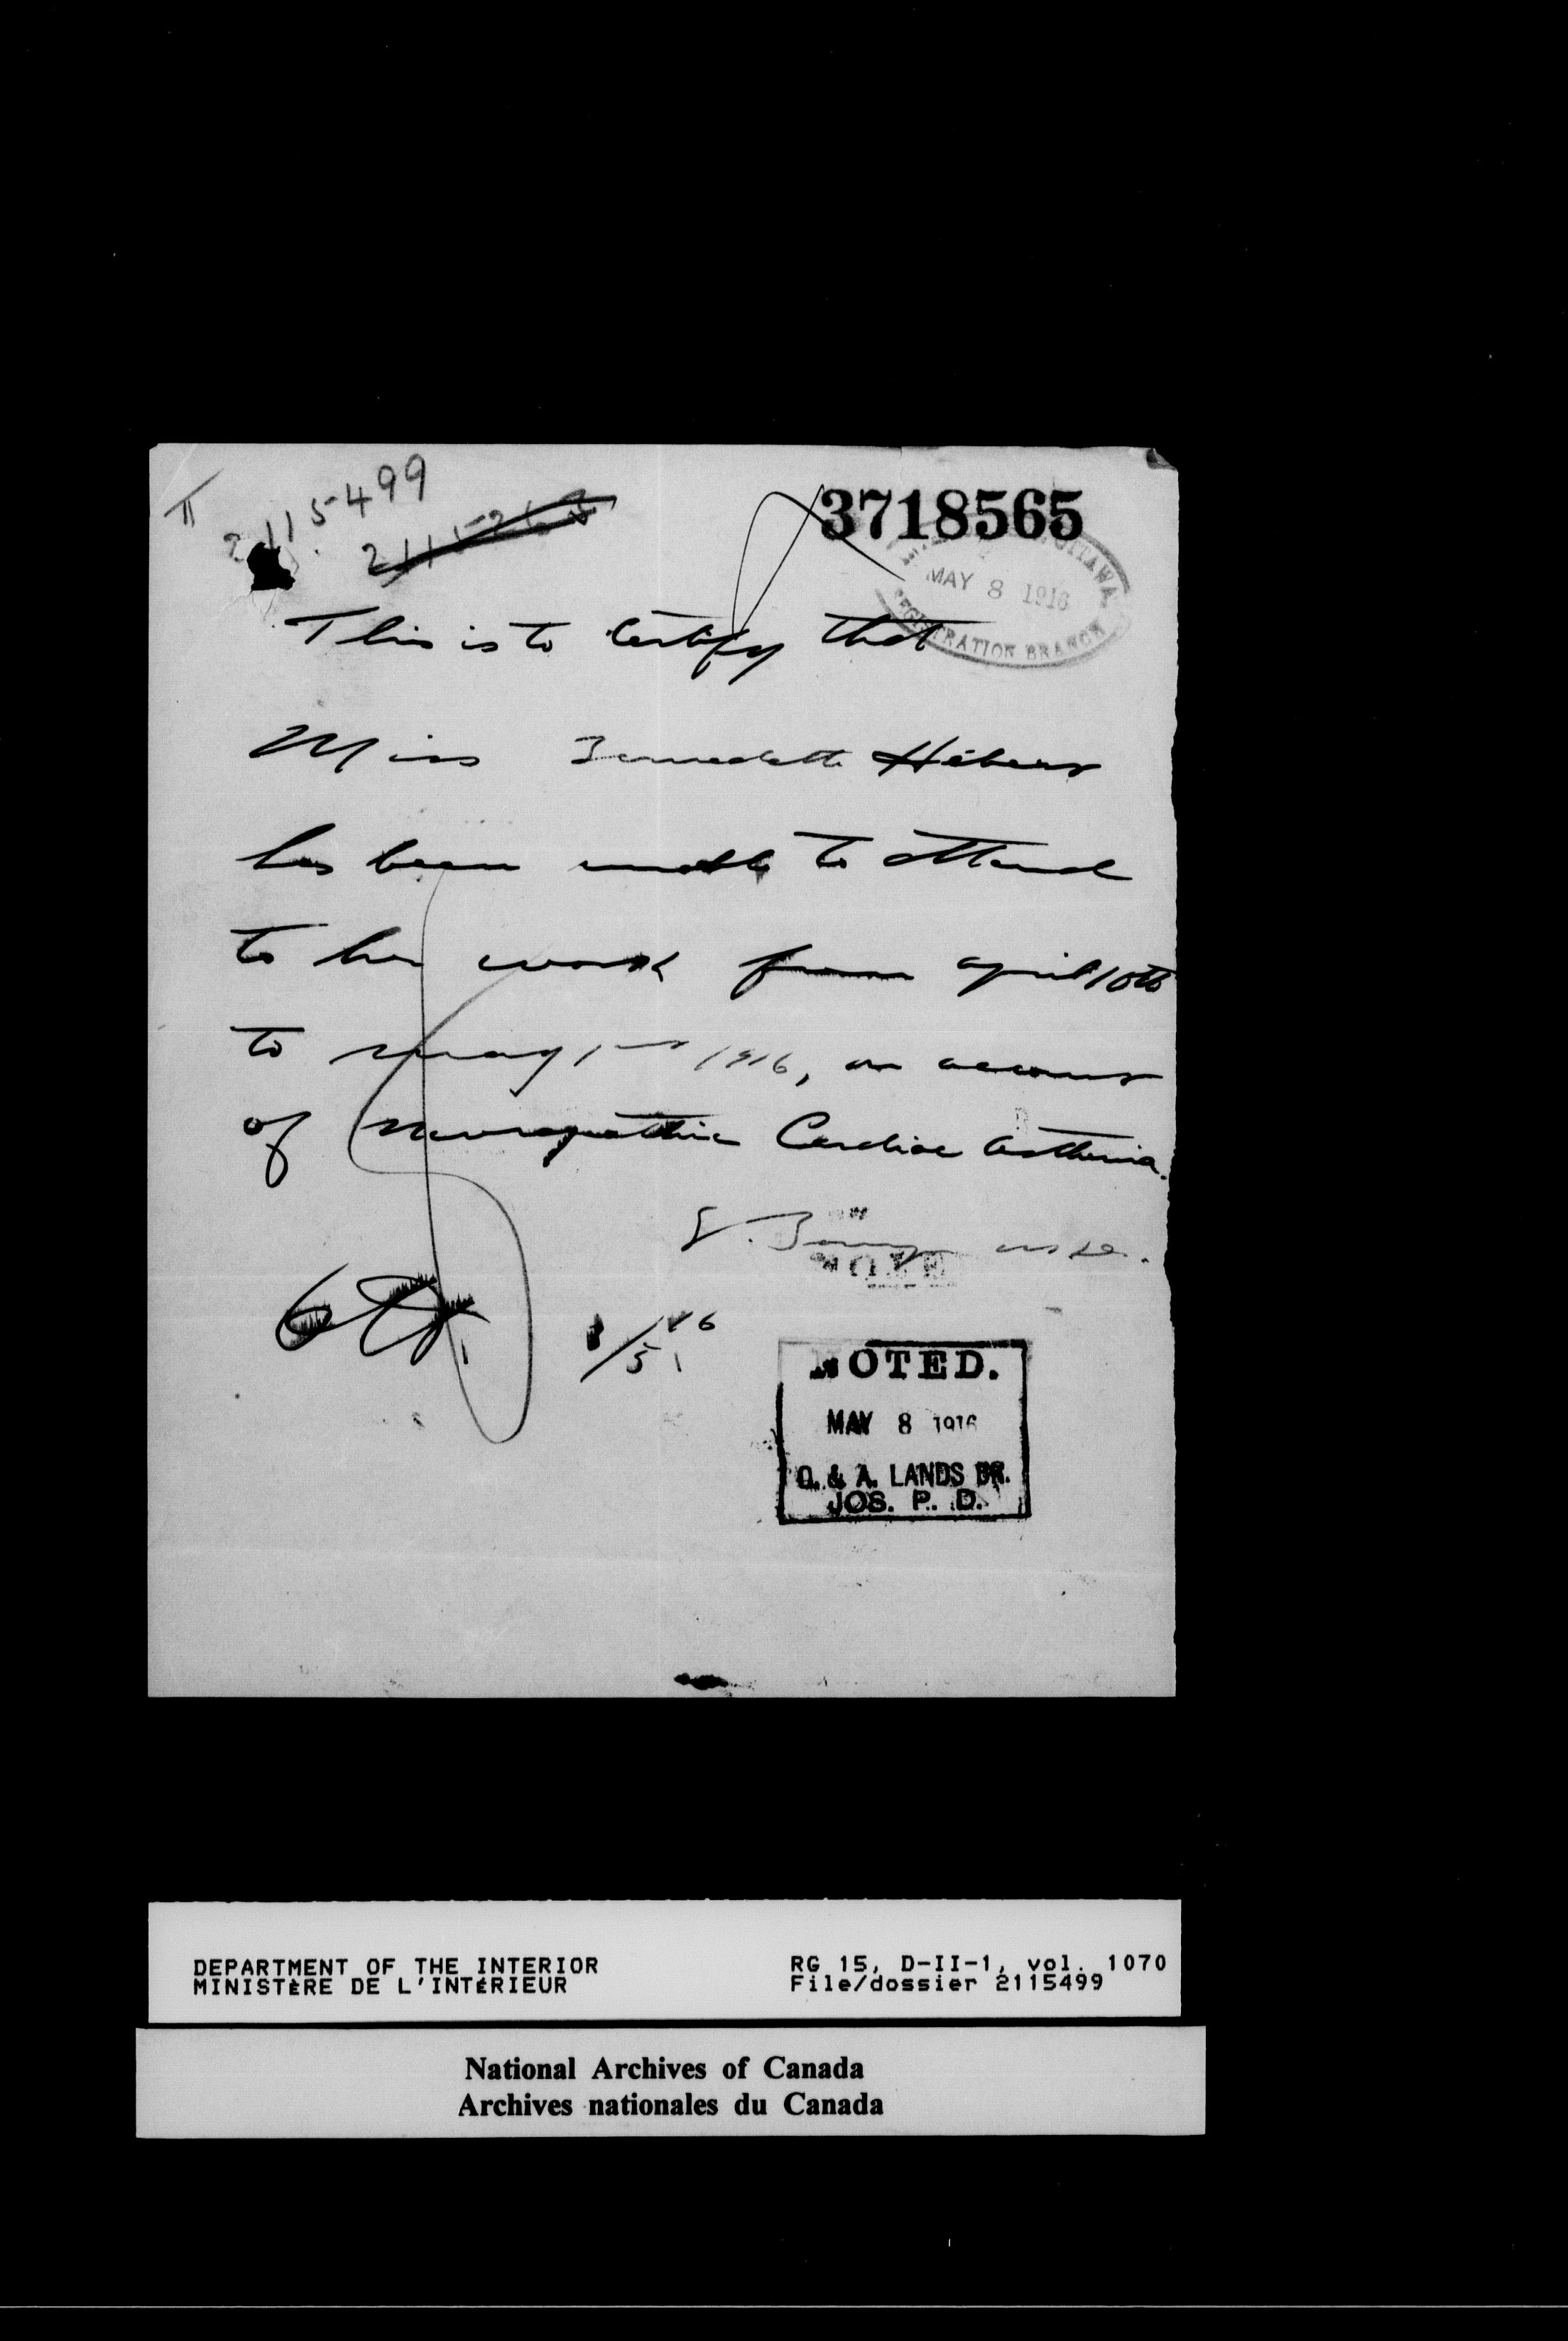 2115499
3718565
OTTAWA
MAY 8 1916
REGISTRATION BRANCH
This is to Certify that
Miss Bernadette Hébert
has been unable to attend
to her work from april 10th
to may 1st 1916, on account
of neuropathic Cardiac asthenia.
8/5/16
NOTED.
MAY 8 1916
O. & A. LANDS BR.
JOS. P. D.
DEPARTMENT OF THE INTERIOR
MINISTÈRE DE L'INTÉRIEUR
RG 15, D-II-1, vol. 1070
File/dossier 2115499
National Archives of Canada
Archives nationales du Canada